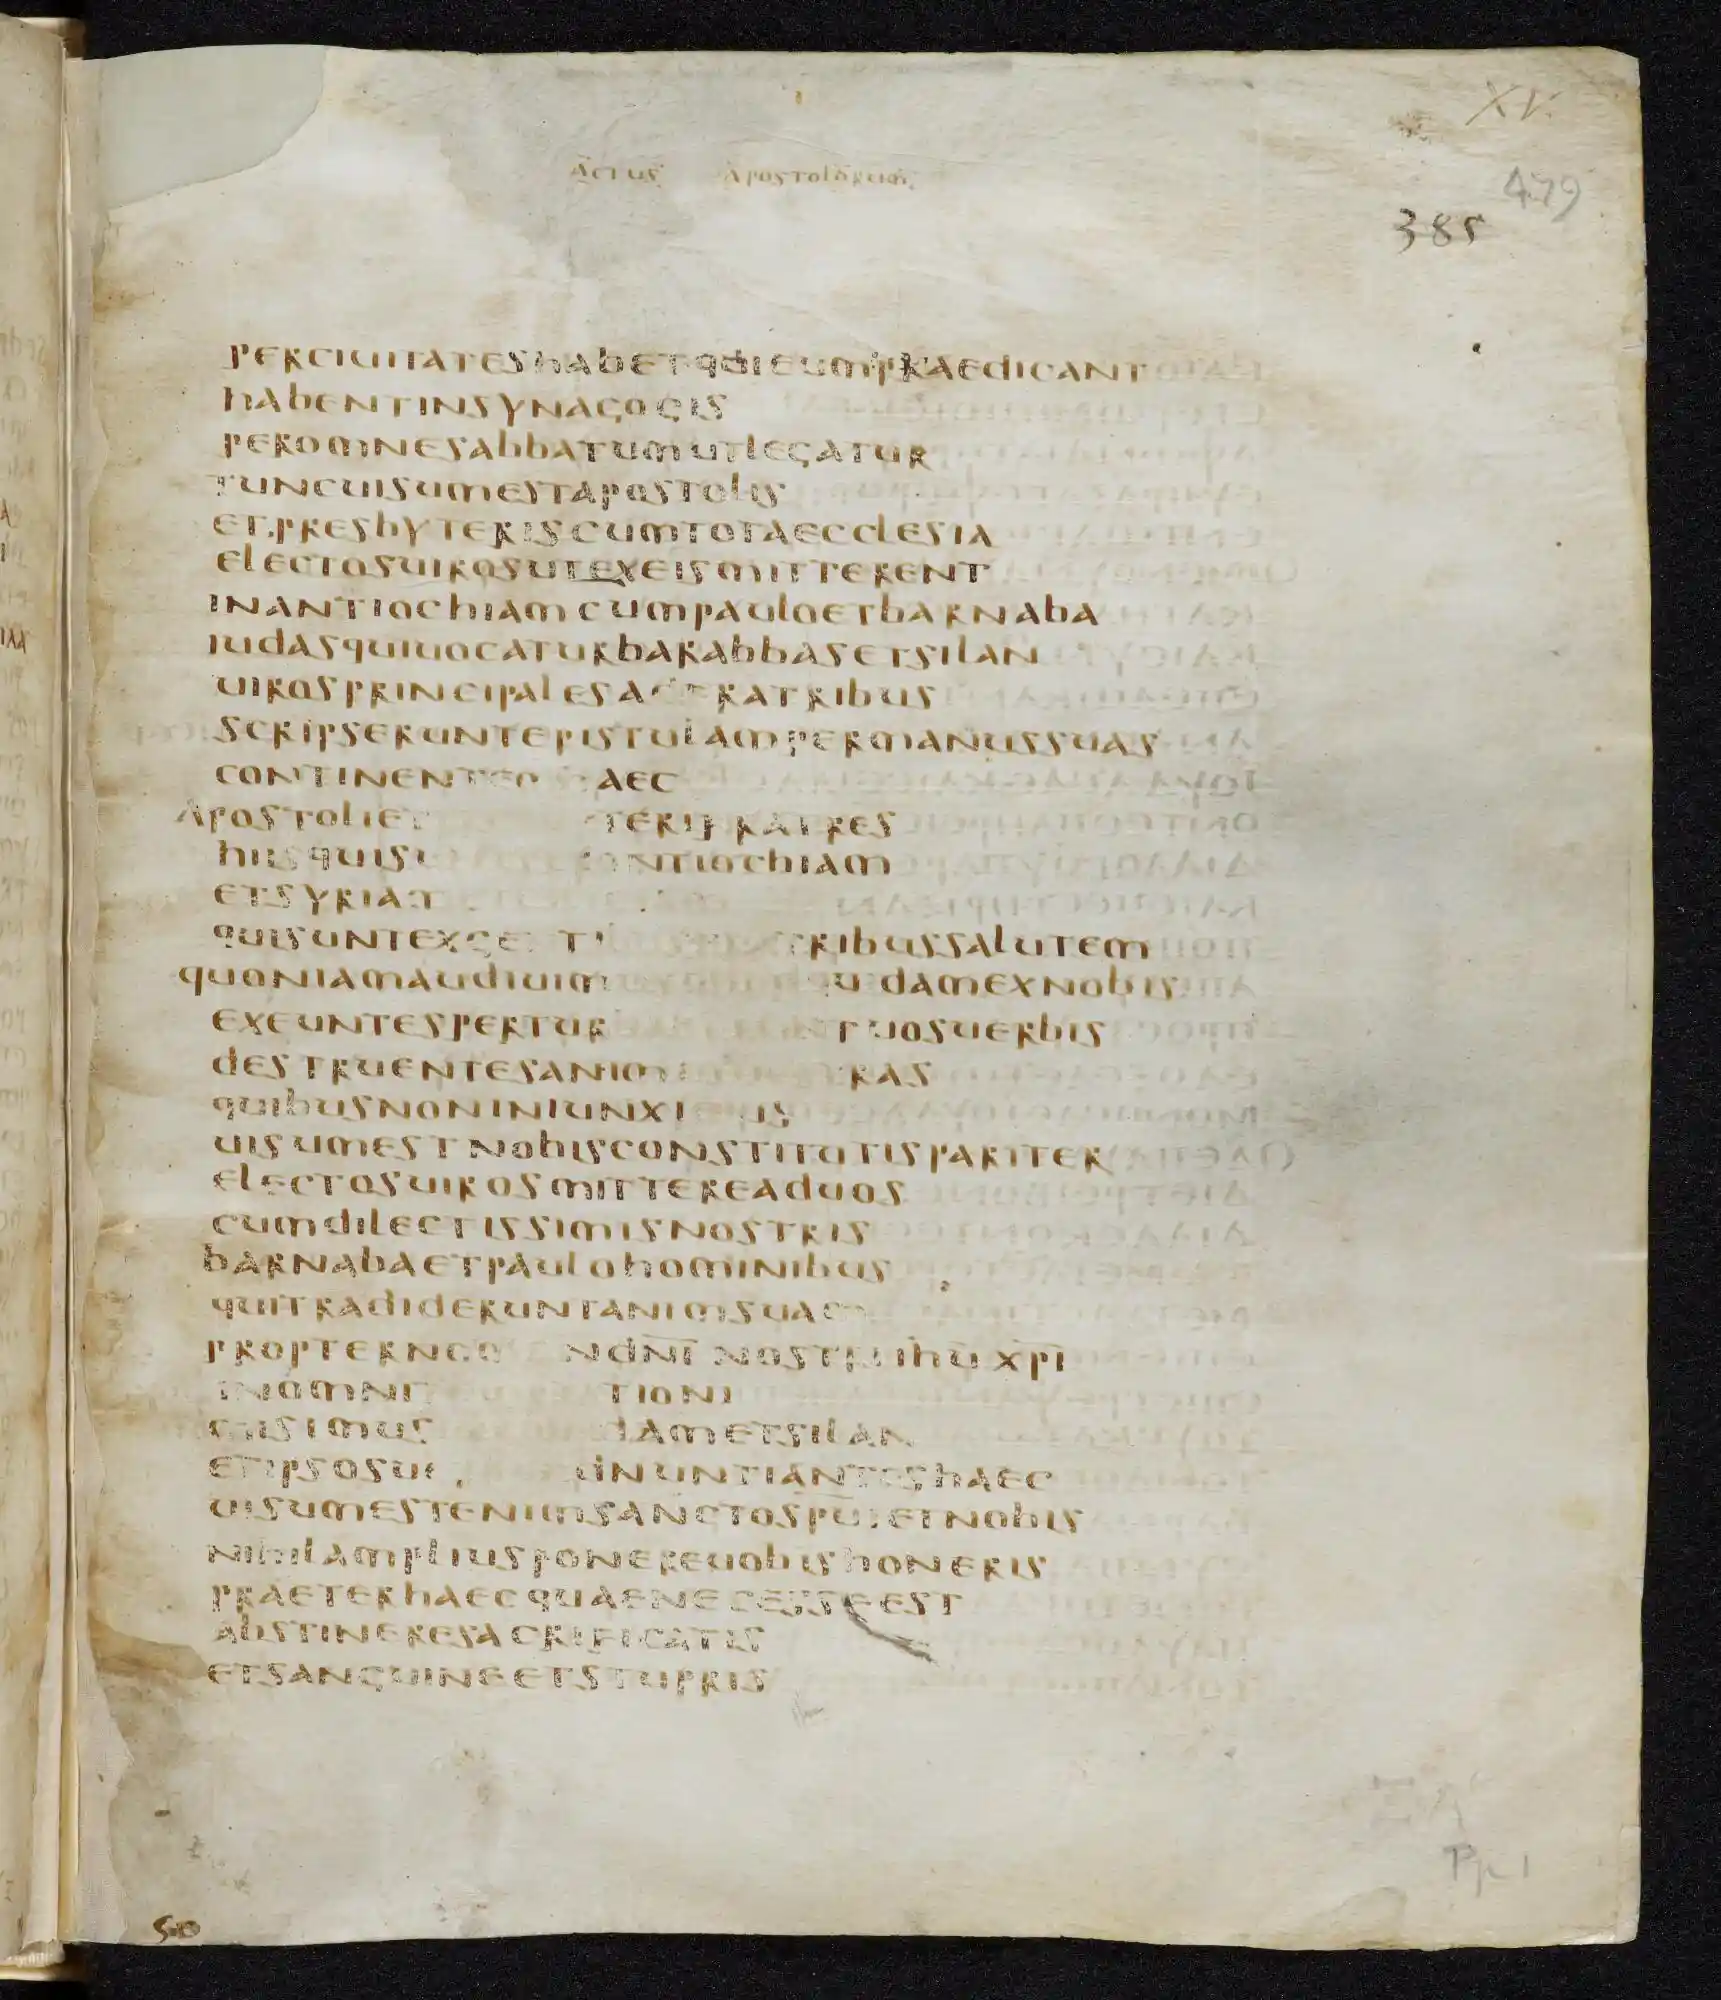 XV.
ACTUS APOSTOLORUM
479
385
PERCIUITATESHABETQUIEUMPRAEDICANT
HABENTINSYNAGOGIS
PEROMNESABBATUMUTLEGATUR
TUNCUISUMESTAPOSTOLIS
ETPRESBYTERISCUMTOTAECCLESIA
ELECTOSUIROSUTEXEISMITTERENT
INANTIOCHIAMCUMPAULOETBARNABA
IUDASQUIUOCATURBARABBASETSILAN
UIROSPRINCIPALES RATRIBUS
SCRIPSERUNTEPISTULAMPERMANUSSUAS
CONTINENTE AEC
APOSTOLIET TERIFRATRES
HIISQUISU NTIOCHIAM
ETSYRIA
QUISUNTEX RIBUSSALUTEM
QUONIAMAUDIUIM DAMEXNOBIS
EXEUNTESPERTUR TUOSUERBIS
DESTRUENTESANIM RAS
QUIBUSNONINIUNXI US
UISUMESTNOBISCONSTITUTISPARITER
ELECTOSUIROSMITTEREADUOS
CUMDILECTISSIMISNOSTRIS
BARNABAETPAULOHOMINIBUS
QUITRADIDERUNTANIMSUAM
PROPTERNO NDN̅I̅ NOSTRI IHU̅ XPI̅
INOMNI TIONI
MISIMUS DAMETSILAN
ETIPSOSUE NUNTIANTESHAEC
UISUMESTENIMSANCTOSPU̅IETNOBIS
NIHILAMPLIUSPONEREUOBISHONERIS
PRAETERHAECQUAENECESSEEST
ABSTINERESACRIFICATIS
ETSANGUINEETSTUPRIS
50